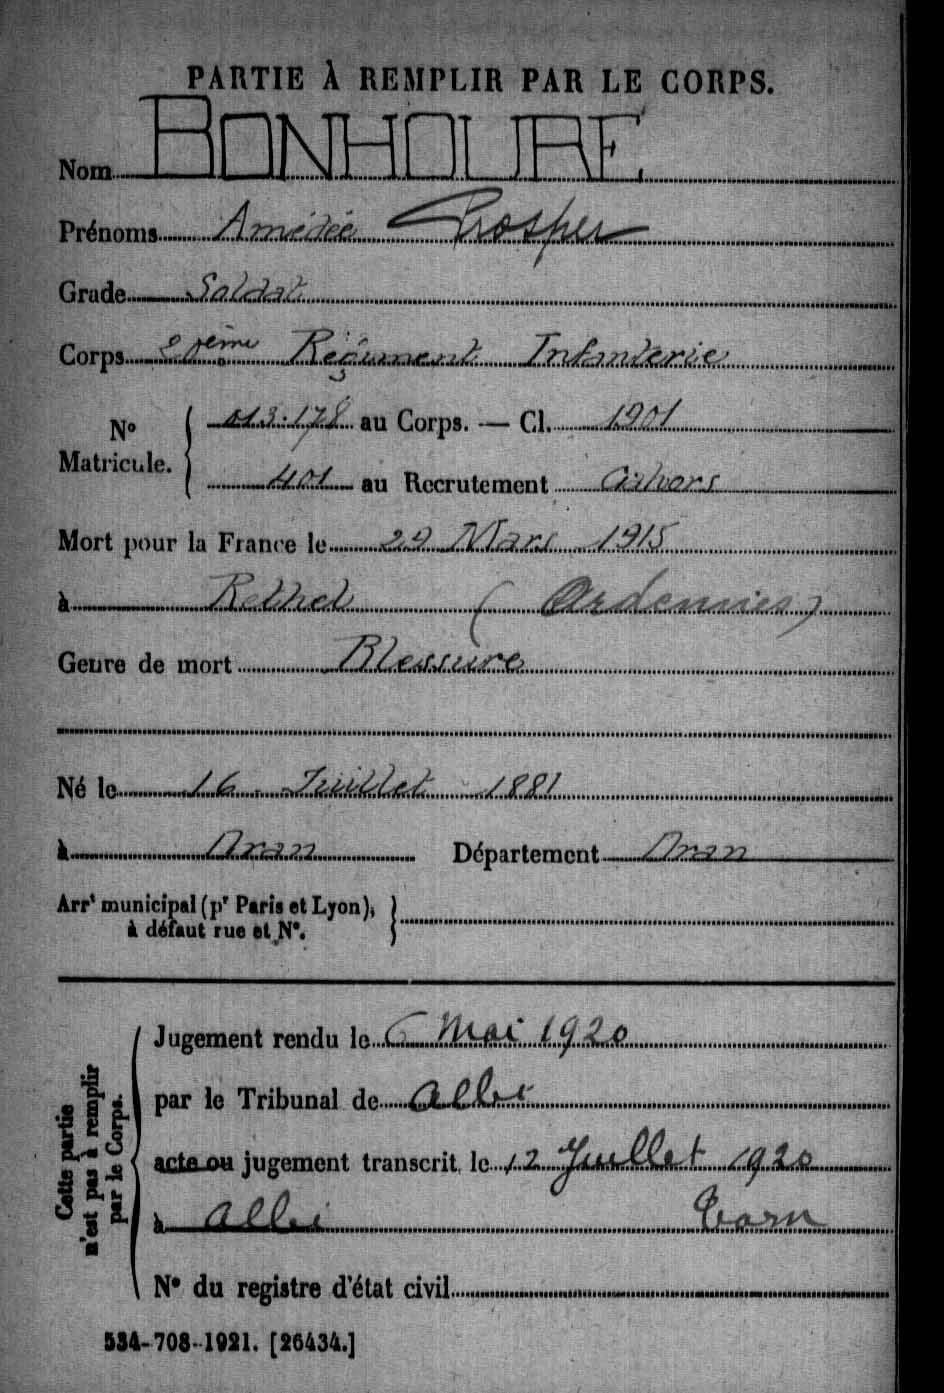 PARTIE À REMPLIR PAR LE CORPS.
Nom BONHOURE
Prénoms Amédée Prosper
Grade Soldat
Corps 2ème Régiment Infanterie
N° Matricule. 013.178 au Corps. — Cl. 1901
401 au Recrutement Cahors
Mort pour la France le 29 Mars 1915
à Rethel (Ardennes)
Genre de mort Blessure
Né le 16 Juillet 1881
à Oran Département Oran
Arrt municipal (pr Paris et Lyon),
à défaut rue et N°.
Cette partie n'est pas à remplir par le Corps.
Jugement rendu le 6 Mai 1920
par le Tribunal de Albi
acte ou jugement transcrit le 12 Juillet 1920
à Albi Tarn
N° du registre d'état civil
534-708-1921. [26434.]